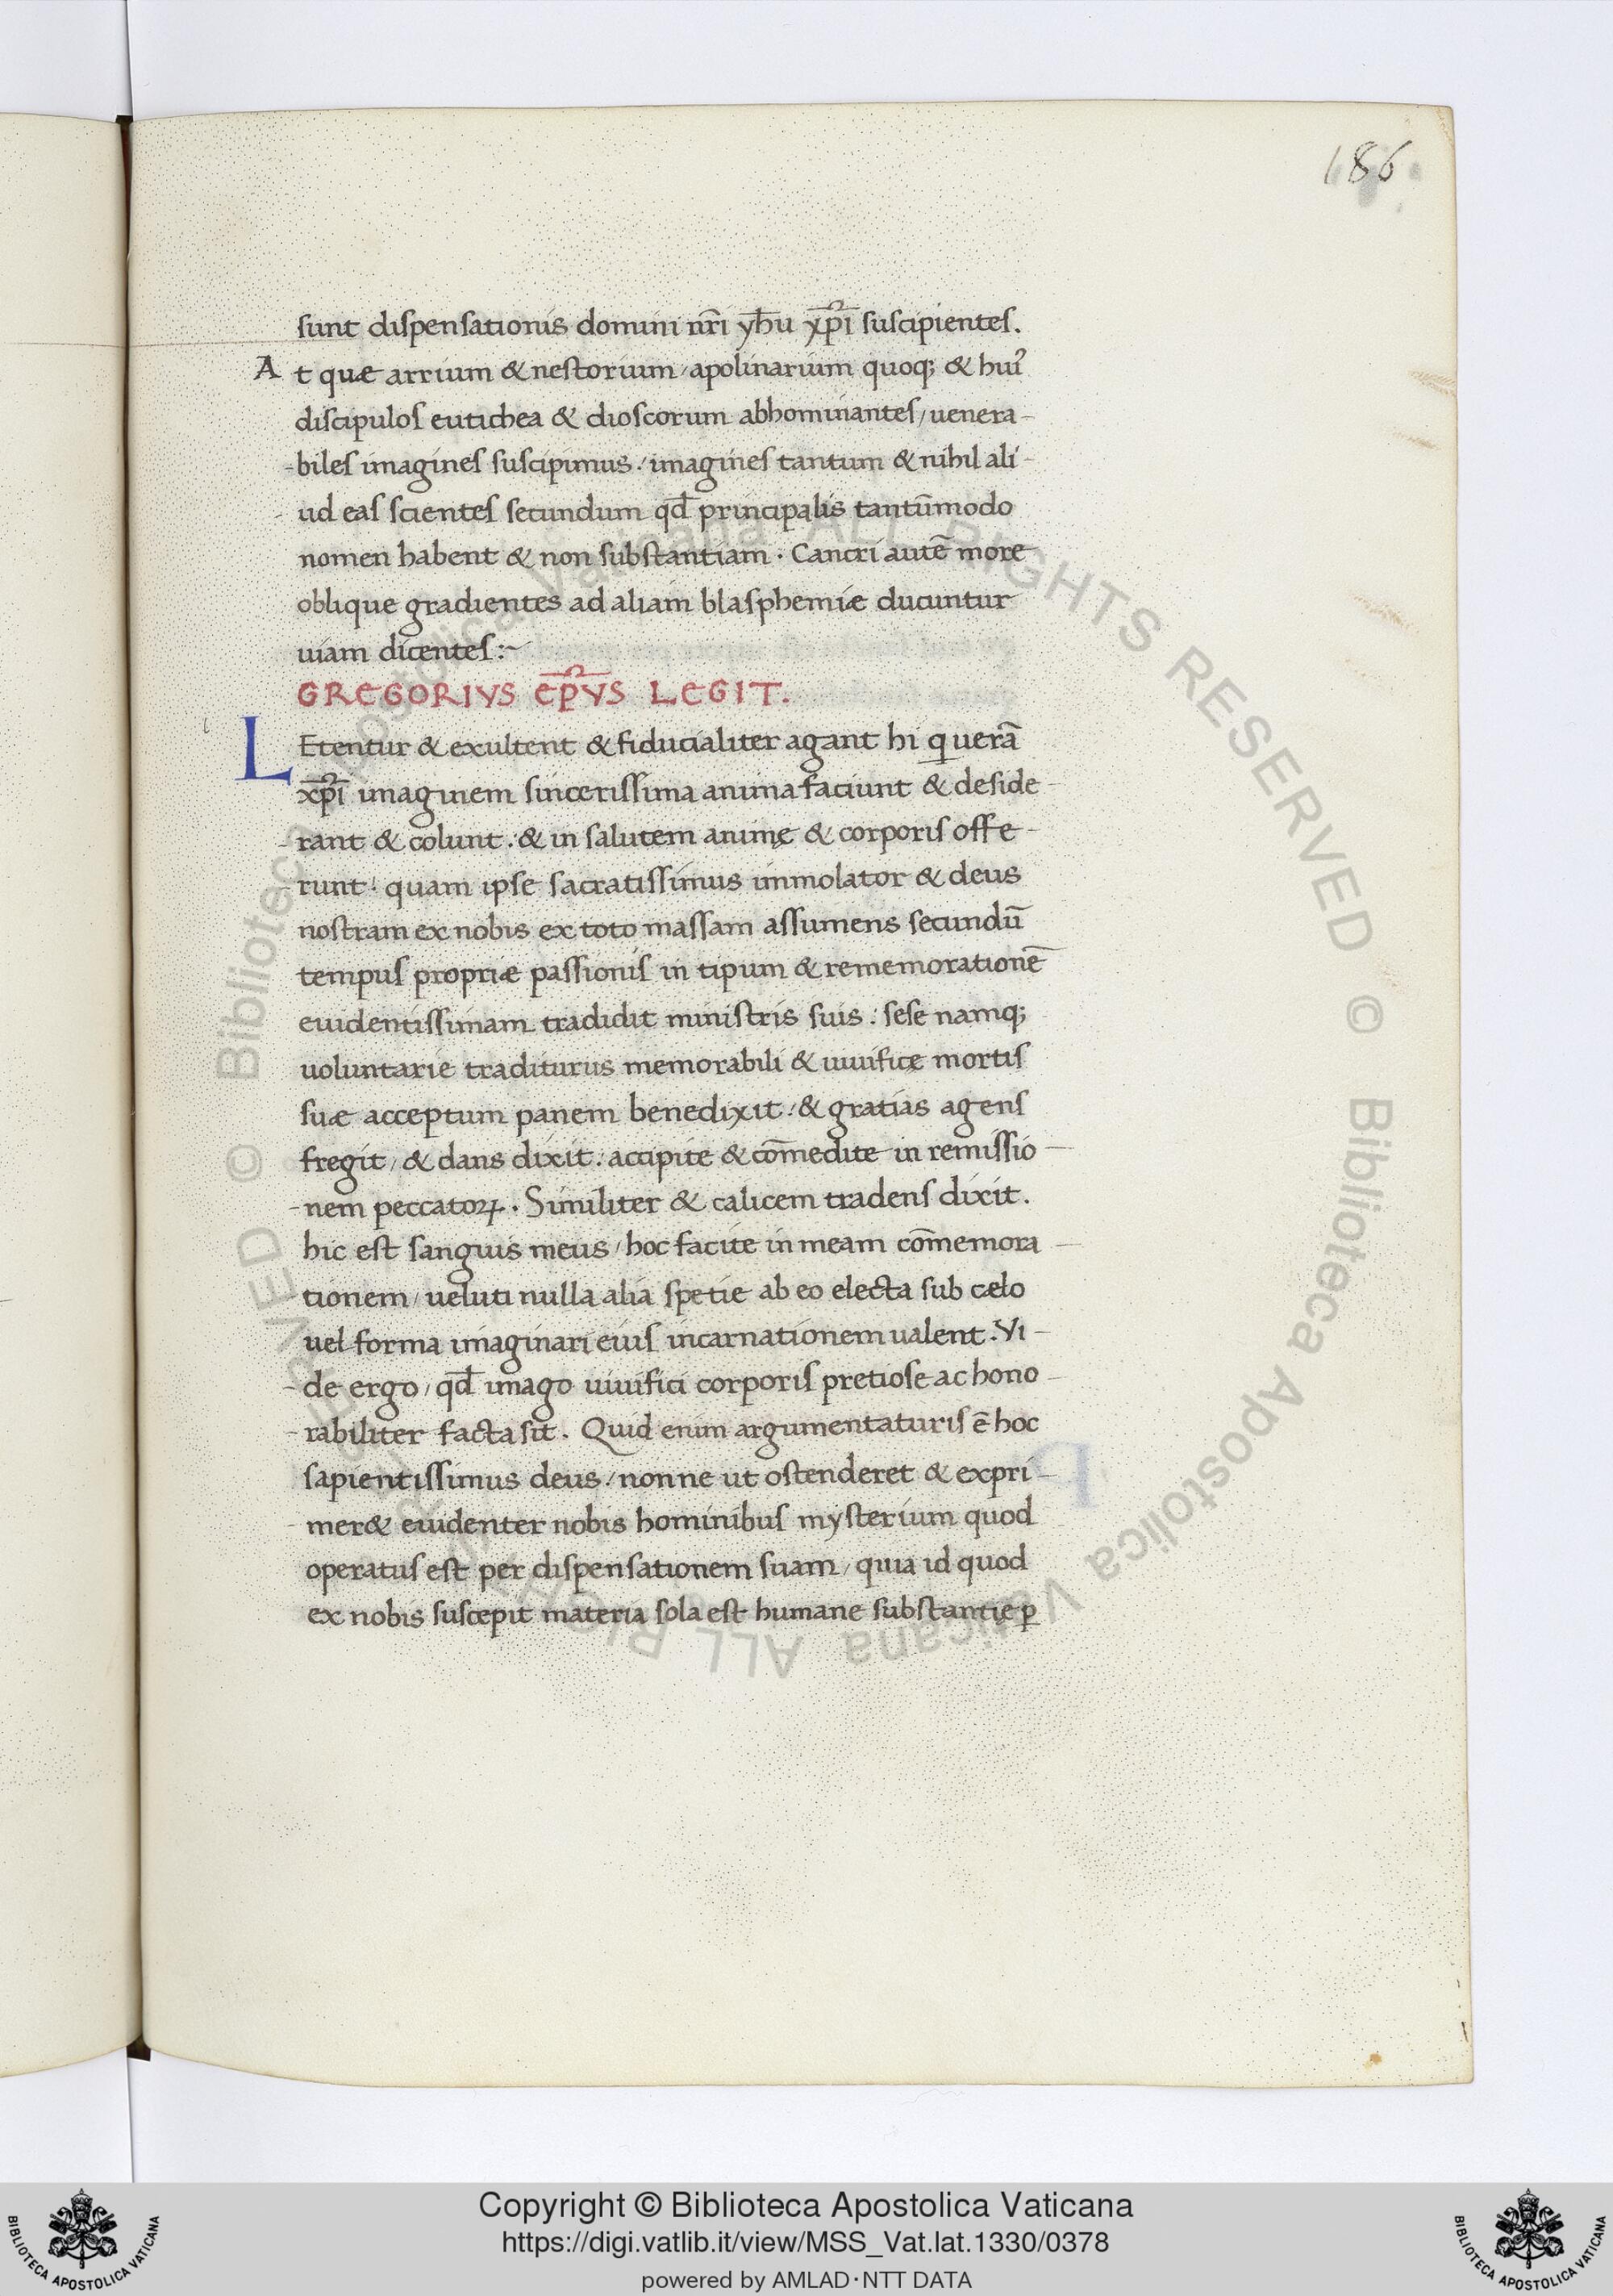 186
sunt dispensationis domini nr̄i yh̄u xp̄i suscipientes.
At quæ arrium & nestorium / apolinarium quoq; & huiꝰ
discipulos eutichea & dioscorum abhominantes / uenera-
-biles imagines suscipimus / imagines tantum & nihil ali-
-ud eas scientes secundum qd̄ principalis tantūmodo
nomen habent & non substantiam. Cancri autē more
oblique gradientes ad aliam blasphemiæ ducuntur
uiam dicentes:~
GREGORIVS EP̄VS LEGIT.
l
LEtentur & exultent & fiducialiter agant hi q uerā
xp̄i imaginem sincerissima anima faciunt & deside-
-rant & colunt. & in salutem animę & corporis offe-
-runt: quam ipse sacratissimus immolator & deus
nostram ex nobis ex toto massam assumens secundū
tempus propriæ passionis in tipum & rememorationē
euidentissimam tradidit ministris suis: sese namq;
uoluntarie traditurus memorabili & uiuificę mortis
suæ acceptum panem benedixit: & gratias agens
fregit / & dans dixit: accipite & com̄edite in remissio-
-nem peccatoꝝ. Similiter & calicem tradens dixit.
hic est sanguis meus / hoc facite in meam com̄emora-
tionem / ueluti nulla alia spetie ab eo electa sub cælo
uel forma imaginari eius incarnationem ualent. Vi-
-de ergo / qd̄ imago uiuifici corporis pretiose ac hono-
-rabiliter facta sit. Quid enim argumentaturis ē hoc
sapientissimus deus / nonne ut ostenderet & expri-
-mer& euidenter nobis hominibus mysterium quod
operatus est per dispensationem suam / quia id quod
ex nobis suscepit materia sola est humane substantię ꝑ
Copyright © Biblioteca Apostolica Vaticana
https://digi.vatlib.it/view/MSS_Vat.lat.1330/0378
powered by AMLAD·NTT DATA
BIBLIOTECA APOSTOLICA VATICANA
BIBLIOTECA APOSTOLICA VATICANA
© Biblioteca Apostolica Vaticana ALL RIGHTS RESERVED © Biblioteca Apostolica Vaticana ALL RIGHTS RESERVED